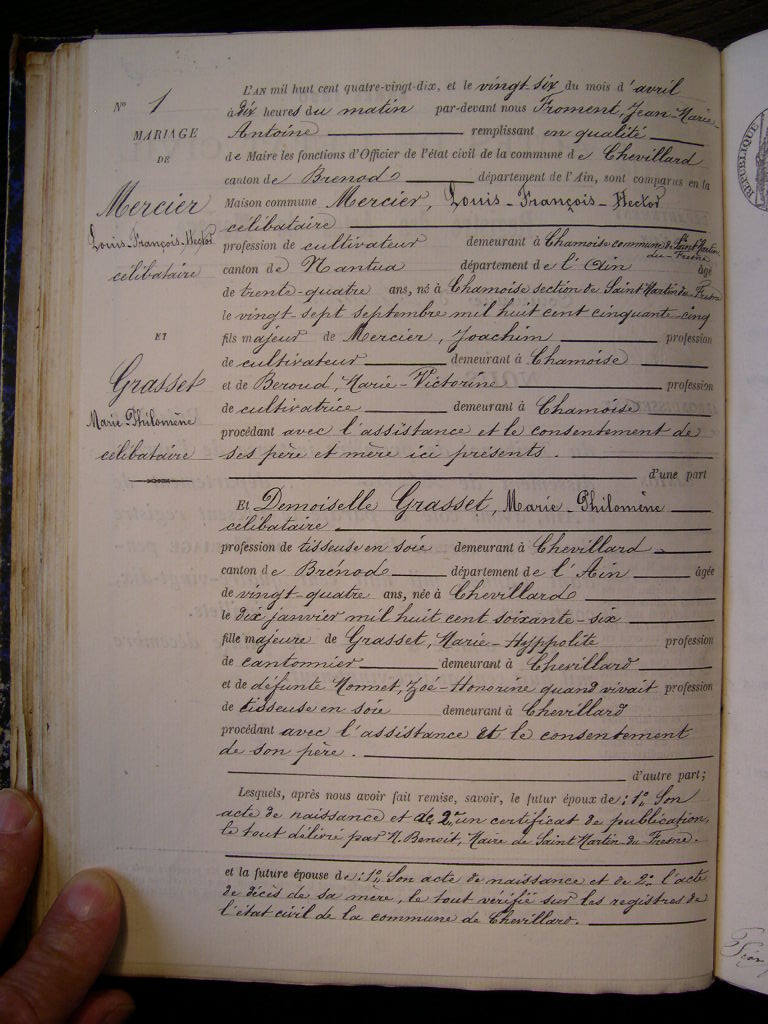 N° 1
MARIAGE
DE
Mercier
Louis-François-Hector
célibataire
ET
Grasset
Marie-Philomène
célibataire
L'AN mil huit cent quatre-vingt-dix, et le vingt-six du mois d'avril
à dix heures du matin par-devant nous Froment, Jean-Marie-
Antoine remplissant en qualité
de Maire les fonctions d'Officier de l'état civil de la commune de Chevillard
canton de Brenod département de l'Ain, sont comparus en la
Maison commune Mercier, Louis-François-Hector
célibataire
profession de cultivateur demeurant à Chamoise commune de St Martin-
du-Fresne
canton de Nantua département de l'Ain âgé
de trente-quatre ans, né à Chamoise section de Saint Martin du Fresne
le vingt-sept septembre mil huit cent cinquante-cinq
fils majeur de Mercier, Joachim profession
de cultivateur demeurant à Chamoise
et de Beroud, Marie-Victorine profession
de cultivatrice demeurant à Chamoise
procédant avec l'assistance et le consentement de
ses père et mère ici présents.
d'une part
Et Demoiselle Grasset, Marie-Philomène
célibataire
profession de tisseuse en soie demeurant à Chevillard
canton de Brénod département de l'Ain âgée
de vingt-quatre ans, née à Chevillard
le dix janvier mil huit cent soixante-six
fille majeure de Grasset, Marie-Hyppolite profession
de cantonnier demeurant à Chevillard
et de défunte Monnet, Zoé-Honorine quand vivait profession
de tisseuse en soie demeurant à Chevillard
procédant avec l'assistance et le consentement
de son père.
d'autre part;
Lesquels, après nous avoir fait remise, savoir, le futur époux de: 1° Son
acte de naissance et de 2° un certificat de publication,
le tout délivré par M. Benoit, Maire de Saint Martin-du-Fresne.
et la future épouse de: 1° Son acte de naissance et de 2° l'acte
de décès de sa mère, le tout vérifié sur les registres de
l'état civil de la commune de Chevillard.
RÉPUBLIQUE